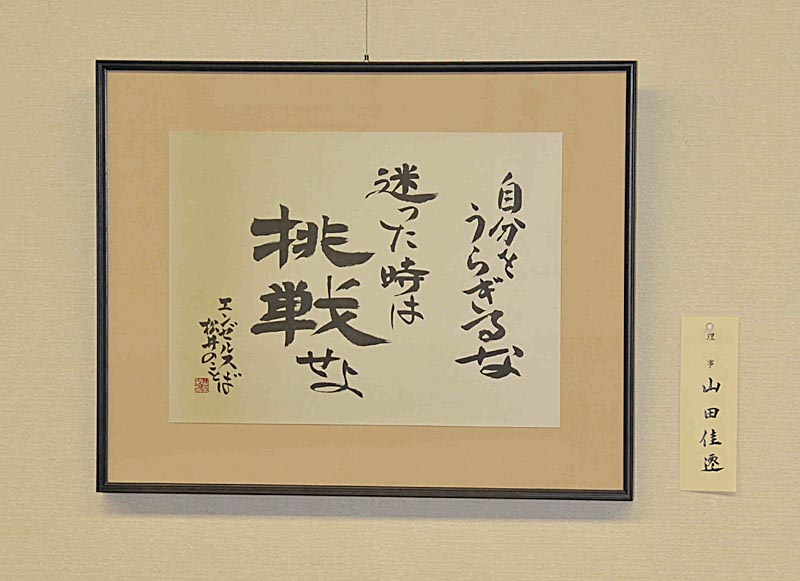 自分を
うらぎるな
迷った時は
挑戦
せよ
エンゼルス
松井のことば
理事
山田佳